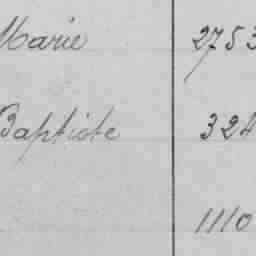 Marie 2753
Baptiste 324
1110